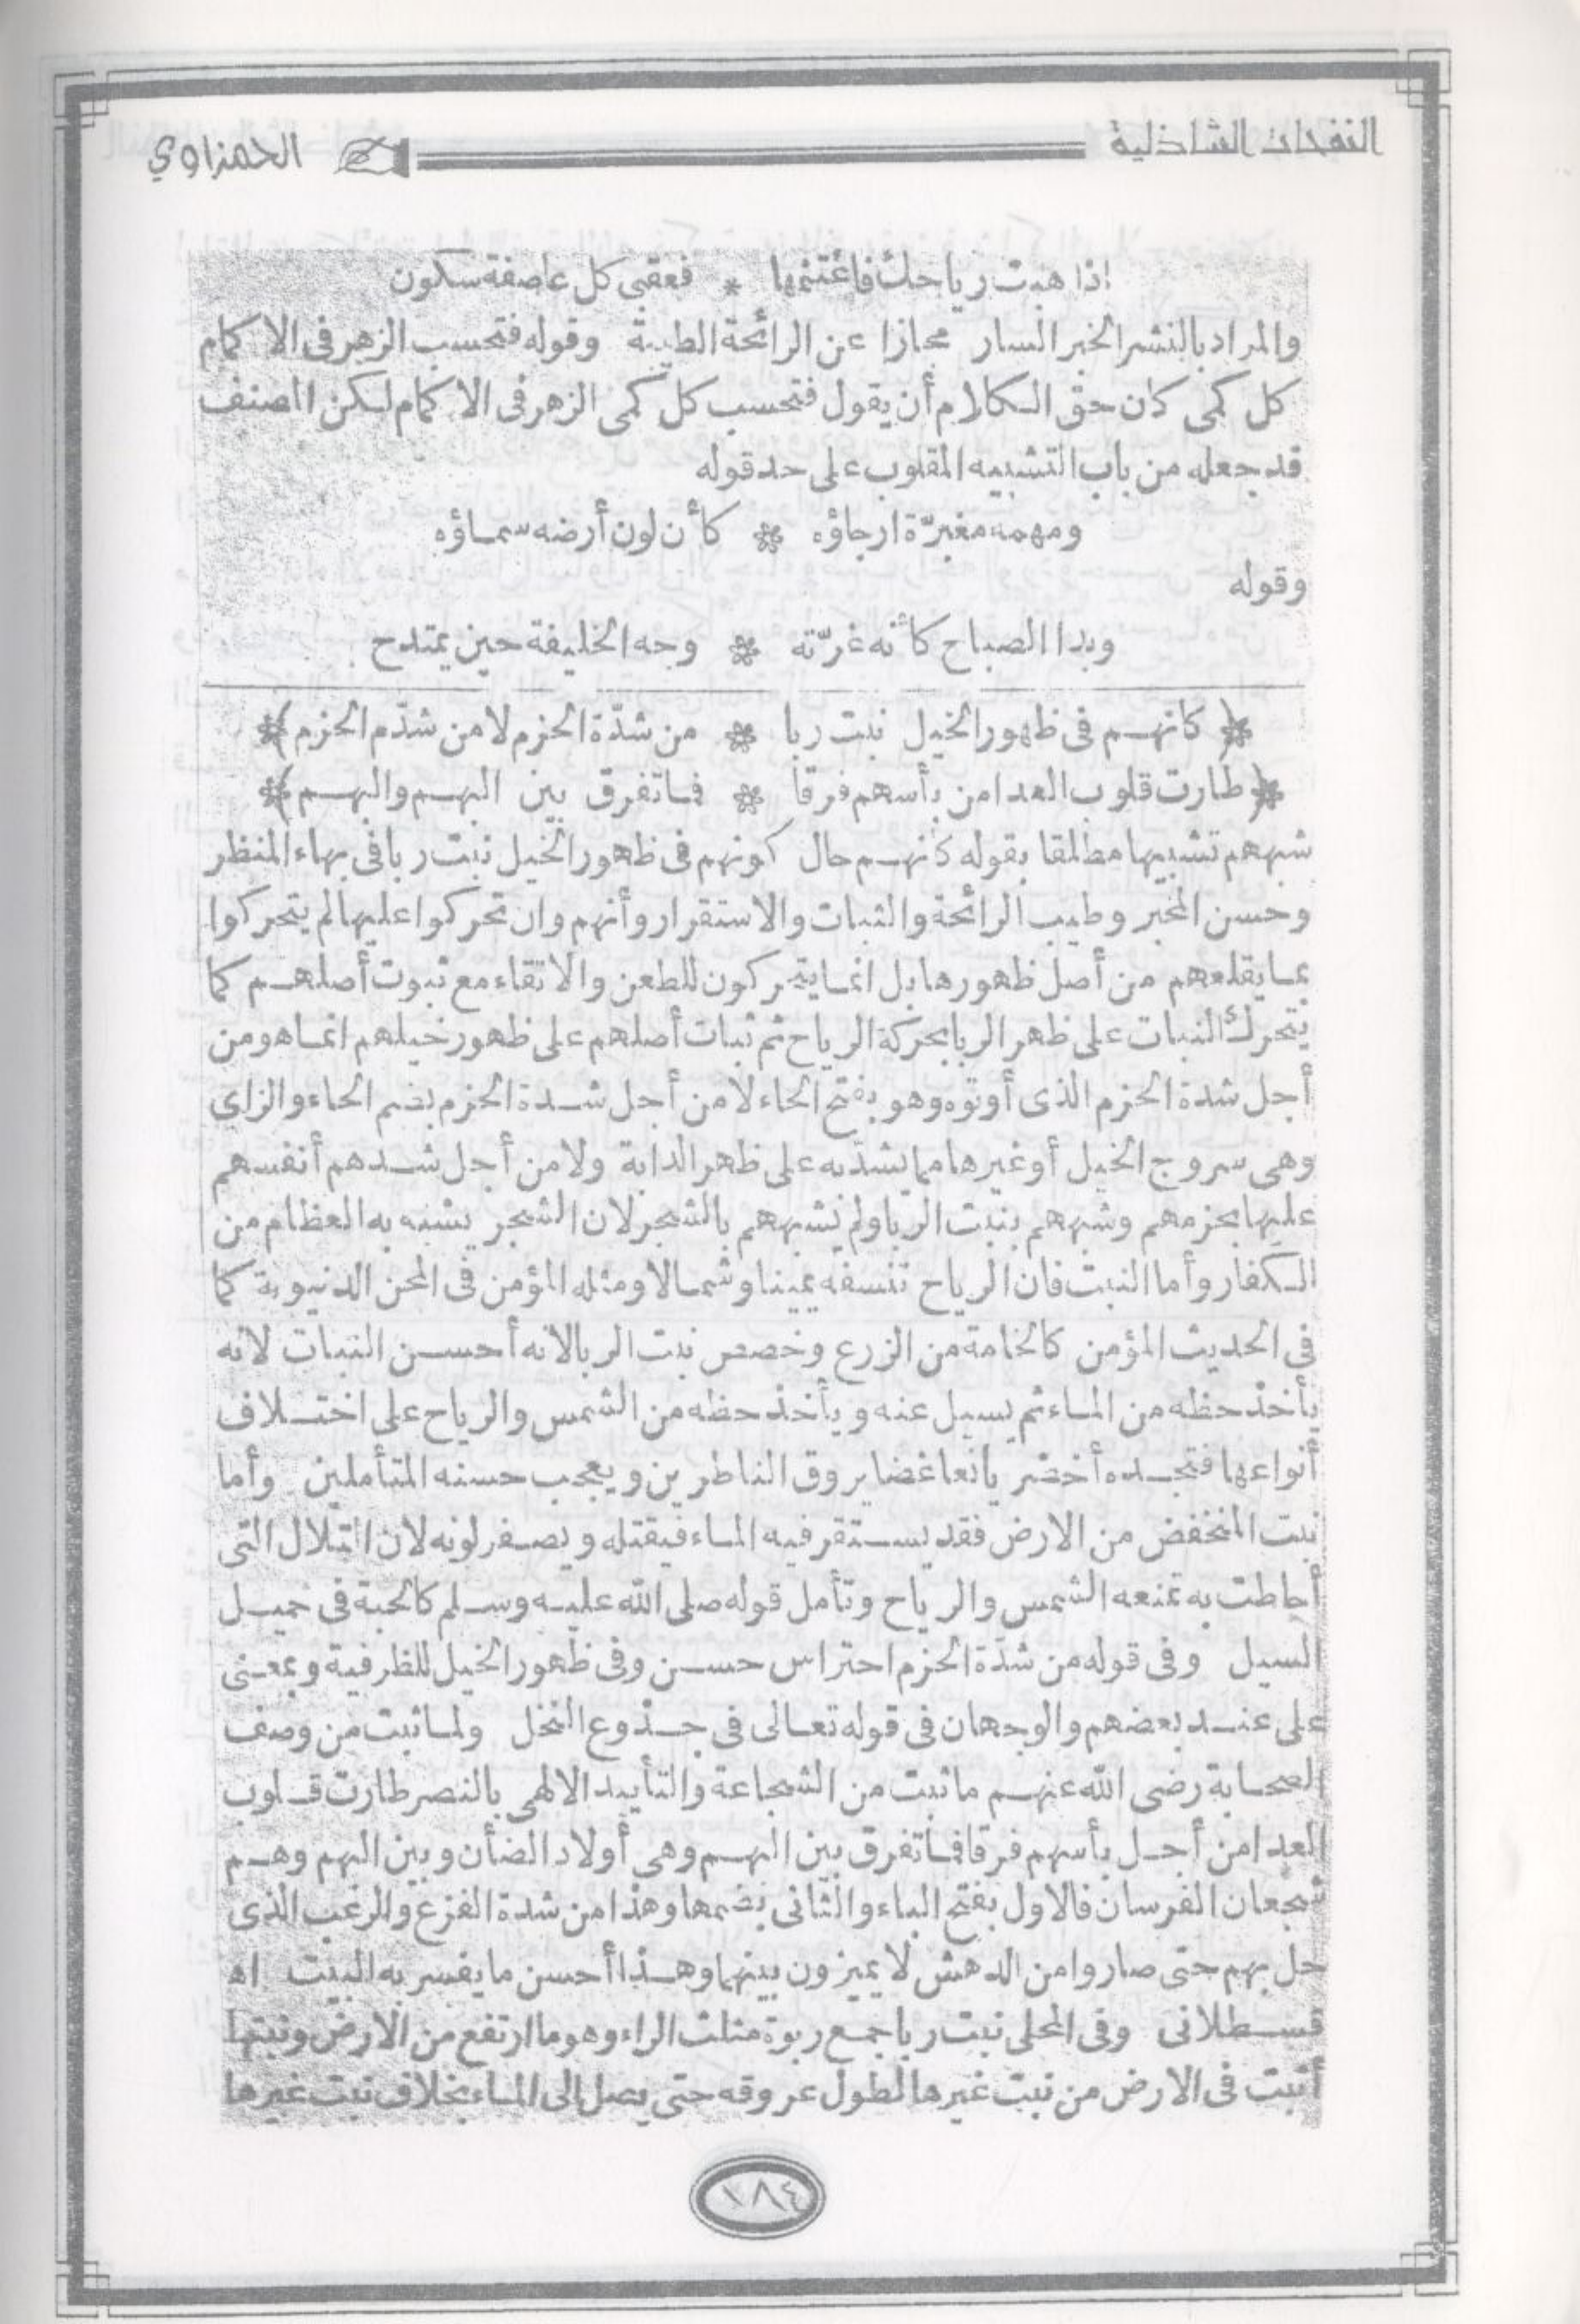 النفحات الشاذلية الحمزاوي
اذا هبت رياحك فاغتنمها * فعقبى كل عاصفة سكون
والمراد بالنشر الخبر السار مجازا عن الرائحة الطيبة وقوله فتحسب الزهر فى الاكمام
كل كمى كان حق الكلام أن يقول فتحسب كل كمى الزهر فى الاكمام لكن المصنف
قد جعله من باب التشبيه المقلوب على حد قوله
ومهمه مغبرّة ارجاؤه * كأن لون أرضه سماؤه
وقوله
وبدا الصباح كأنه غرّته * وجه الخليفة حين يمتدح
* كانهم فى ظهور الخيل نبت ربا * من شدّة الحزم لا من شدّم الحزم *
* طارت قلوب العدا من بأسهم فرقا * فما تفرق بين البهم والبهم *
شبههم تشبيها مطلقا بقوله كانهم حال كونهم فى ظهور الخيل نبت ربا فى بهاء المنظر
وحسن المخبر وطيب الرائحة والثبات والاستقرار وأنهم وان تحركوا عليها لم يتحركوا
بما يقلعهم من أصل ظهورها بل انما يتحركون للطعن والاتقاء مع ثبوت أصلهم كما
يتحرك النبات على ظهر الربا بحركة الرياح ثم ثبات أصلهم على ظهور خيلهم انما هو من
أجل شدة الحزم الذى أوتوه وهو بفتح الحاء لا من أجل شدة الحزم بضم الحاء والزاى
وهى سروج الخيل أو غيرها مما يشدّ به على ظهر الدابة ولا من أجل شدهم أنفسهم
عليها بحزمهم وشبههم بنبت الربا ولم يشبههم بالشجر لان الشجر يشبه به العظام من
الكفار وأما النبت فان الرياح تنسفه يمينا وشمالا ومثله المؤمن فى المحن الدنيوية كما
فى الحديث المؤمن كالخامة من الزرع وخصص نبت الربا لانه أحسن النبات لانه
يأخذ حظه من الماء ثم يسيل عنه ويأخذ حظه من الشمس والرياح على اختلاف
أنواعها فتجده أخضر يانعا غضا يروق الناظرين ويعجب حسنه المتأملين وأما
نبت المنخفض من الارض فقد يستقر فيه الماء فيقتله ويصفر لونه لان التلال التى
أحاطت به تمنعه الشمس والرياح وتأمل قوله صلى الله عليه وسلم كالحبة فى حميل
السيل وفى قوله من شدّة الحزم احتراس حسن وفى ظهور الخيل للظرفية وبمعنى
على عند بعضهم والوجهان فى قوله تعالى فى جذوع النخل ولما ثبت من وصف
الصحابة رضى الله عنهم ما ثبت من الشجاعة والتأييد الالهى بالنصر طارت قلوب
العدا من أجل بأسهم فرقا فما تفرق بين البهم وهى أولاد الضأن وبين البهم وهم
شجعان الفرسان فالاول بفتح الباء والثانى بضمها وهذا من شدة الفزع والرعب الذى
حل بهم حتى صاروا من الدهش لا يميزون بينهما وهذا أحسن ما يفسر به البيت اه
قسطلانى وفى المحلى نبت ربا جمع ربوة مثلث الراء وهو ما ارتفع من الارض ونبتها
أثبت فى الارض من نبت غيرها لطول عروقه حتى يصل الى الماء بخلاف نبت غيرها
١٨٤